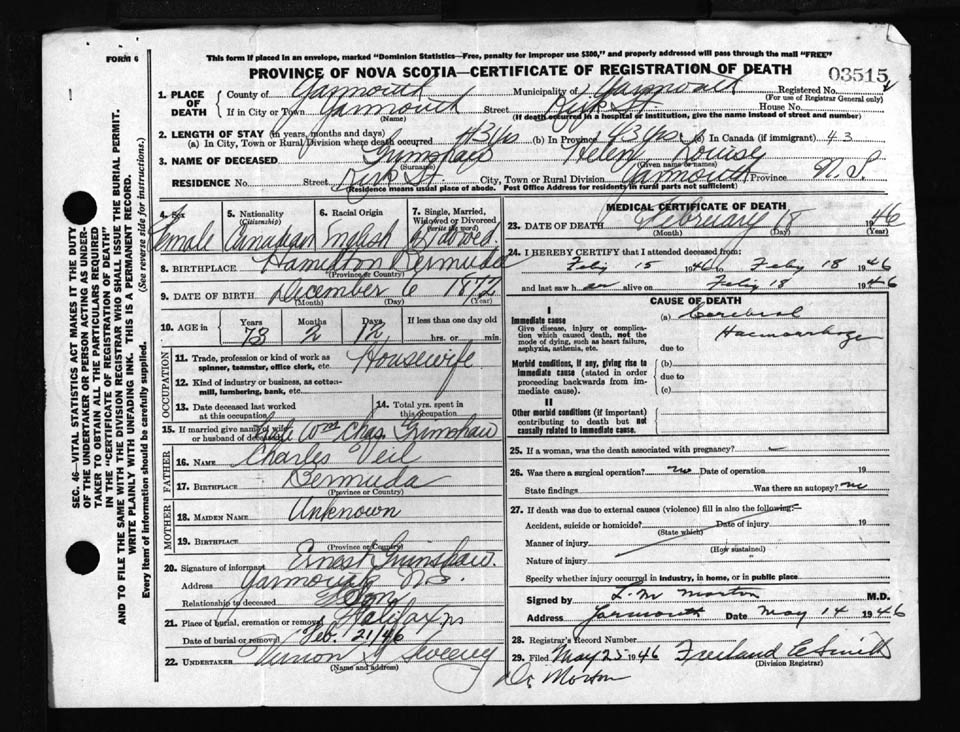 FORM 6
This form if placed in an envelope, marked "Dominion Statistics—Free, penalty for improper use $300," and properly addressed will pass through the mail "FREE"
PROVINCE OF NOVA SCOTIA—CERTIFICATE OF REGISTRATION OF DEATH
03515
1. PLACE OF DEATH
County of Yarmouth Municipality of Yarmouth Registered No.
(For use of Registrar General only)
If in City or Town Yarmouth Street Kirk St. House No.
(Name) (If death occurred in a hospital or institution, give the name instead of street and number)
2. LENGTH OF STAY (in years, months and days)
(a) In City, Town or Rural Division where death occurred 43 yrs (b) In Province 43 yrs (c) In Canada (if immigrant) 43
3. NAME OF DECEASED Grimshaw Helen Louise
(Surname) (Given name or names)
RESIDENCE No. Street Kirk St. City, Town or Rural Division Yarmouth Province N.S.
(Residence means usual place of abode. Post Office Address for residents in rural parts not sufficient)
4. Sex
Female
5. Nationality (Citizenship)
Canadian
6. Racial Origin
English
7. Single, Married, Widowed or Divorced (write the word)
Widowed.
8. BIRTHPLACE Hamilton Bermuda
(Province or Country)
9. DATE OF BIRTH December 6 1872
(Month) (Day) (Year)
10. AGE in
Years Months Days If less than one day old
73 2 12 hrs. or min.
OCCUPATION
11. Trade, profession or kind of work as spinner, teamster, office clerk, etc. Housewife
12. Kind of industry or business, as cotton-mill, lumbering, bank, etc.
13. Date deceased last worked at this occupation
14. Total yrs. spent in this occupation
15. If married give name of wife or husband of deceased Wm Chas. Grimshaw
FATHER
16. NAME Charles Veil
17. BIRTHPLACE Bermuda
(Province or Country)
MOTHER
18. MAIDEN NAME Unknown
19. BIRTHPLACE
(Province or Country)
20. Signature of informant Ernest Grimshaw.
Address Yarmouth N.S.
Relationship to deceased Son
21. Place of burial, cremation or removal Halifax NS
Date of burial or removal Feb. 21/46
22. UNDERTAKER Vernon Sweeny
(Name and address)
MEDICAL CERTIFICATE OF DEATH
23. DATE OF DEATH February 18 1946
(Month) (Day) (Year)
24. I HEREBY CERTIFY that I attended deceased from
Feby 15 1946 to Feby 18 1946
and last saw h er alive on Feby 18 1946
CAUSE OF DEATH
I
Immediate cause
Give disease, injury or complication which caused death, not the mode of dying, such as heart failure, asphyxia, asthenia, etc.
(a) Cerebral
Haemorrhage
due to
Morbid conditions, if any, giving rise to immediate cause (stated in order proceeding backwards from immediate cause).
(b)
due to
(c)
II
Other morbid conditions (if important) contributing to death but not causally related to immediate cause.
25. If a woman, was the death associated with pregnancy?
26. Was there a surgical operation? no Date of operation 19
State findings Was there an autopsy? no
27. If death was due to external causes (violence) fill in also the following:—
Accident, suicide or homicide? Date of injury 19
(State which)
Manner of injury
(How sustained)
Nature of injury
Specify whether injury occurred in industry, in home, or in public place
Signed by L. M. Morton M.D.
Address Yarmouth Date May 14 1946
28. Registrar's Record Number
29. Filed May 25 1946 Freeland C Smith
(Division Registrar)
Dr Morton
SEC. 46—VITAL STATISTICS ACT MAKES IT THE DUTY
OF THE UNDERTAKER OR PERSON ACTING AS UNDER-
TAKER TO OBTAIN ALL THE PARTICULARS REQUIRED
IN THE "CERTIFICATE OF REGISTRATION OF DEATH"
AND TO FILE THE SAME WITH THE DIVISION REGISTRAR WHO SHALL ISSUE THE BURIAL PERMIT.
WRITE PLAINLY WITH UNFADING INK. THIS IS A PERMANENT RECORD.
Every item of information should be carefully supplied. (See reverse side for instructions.)